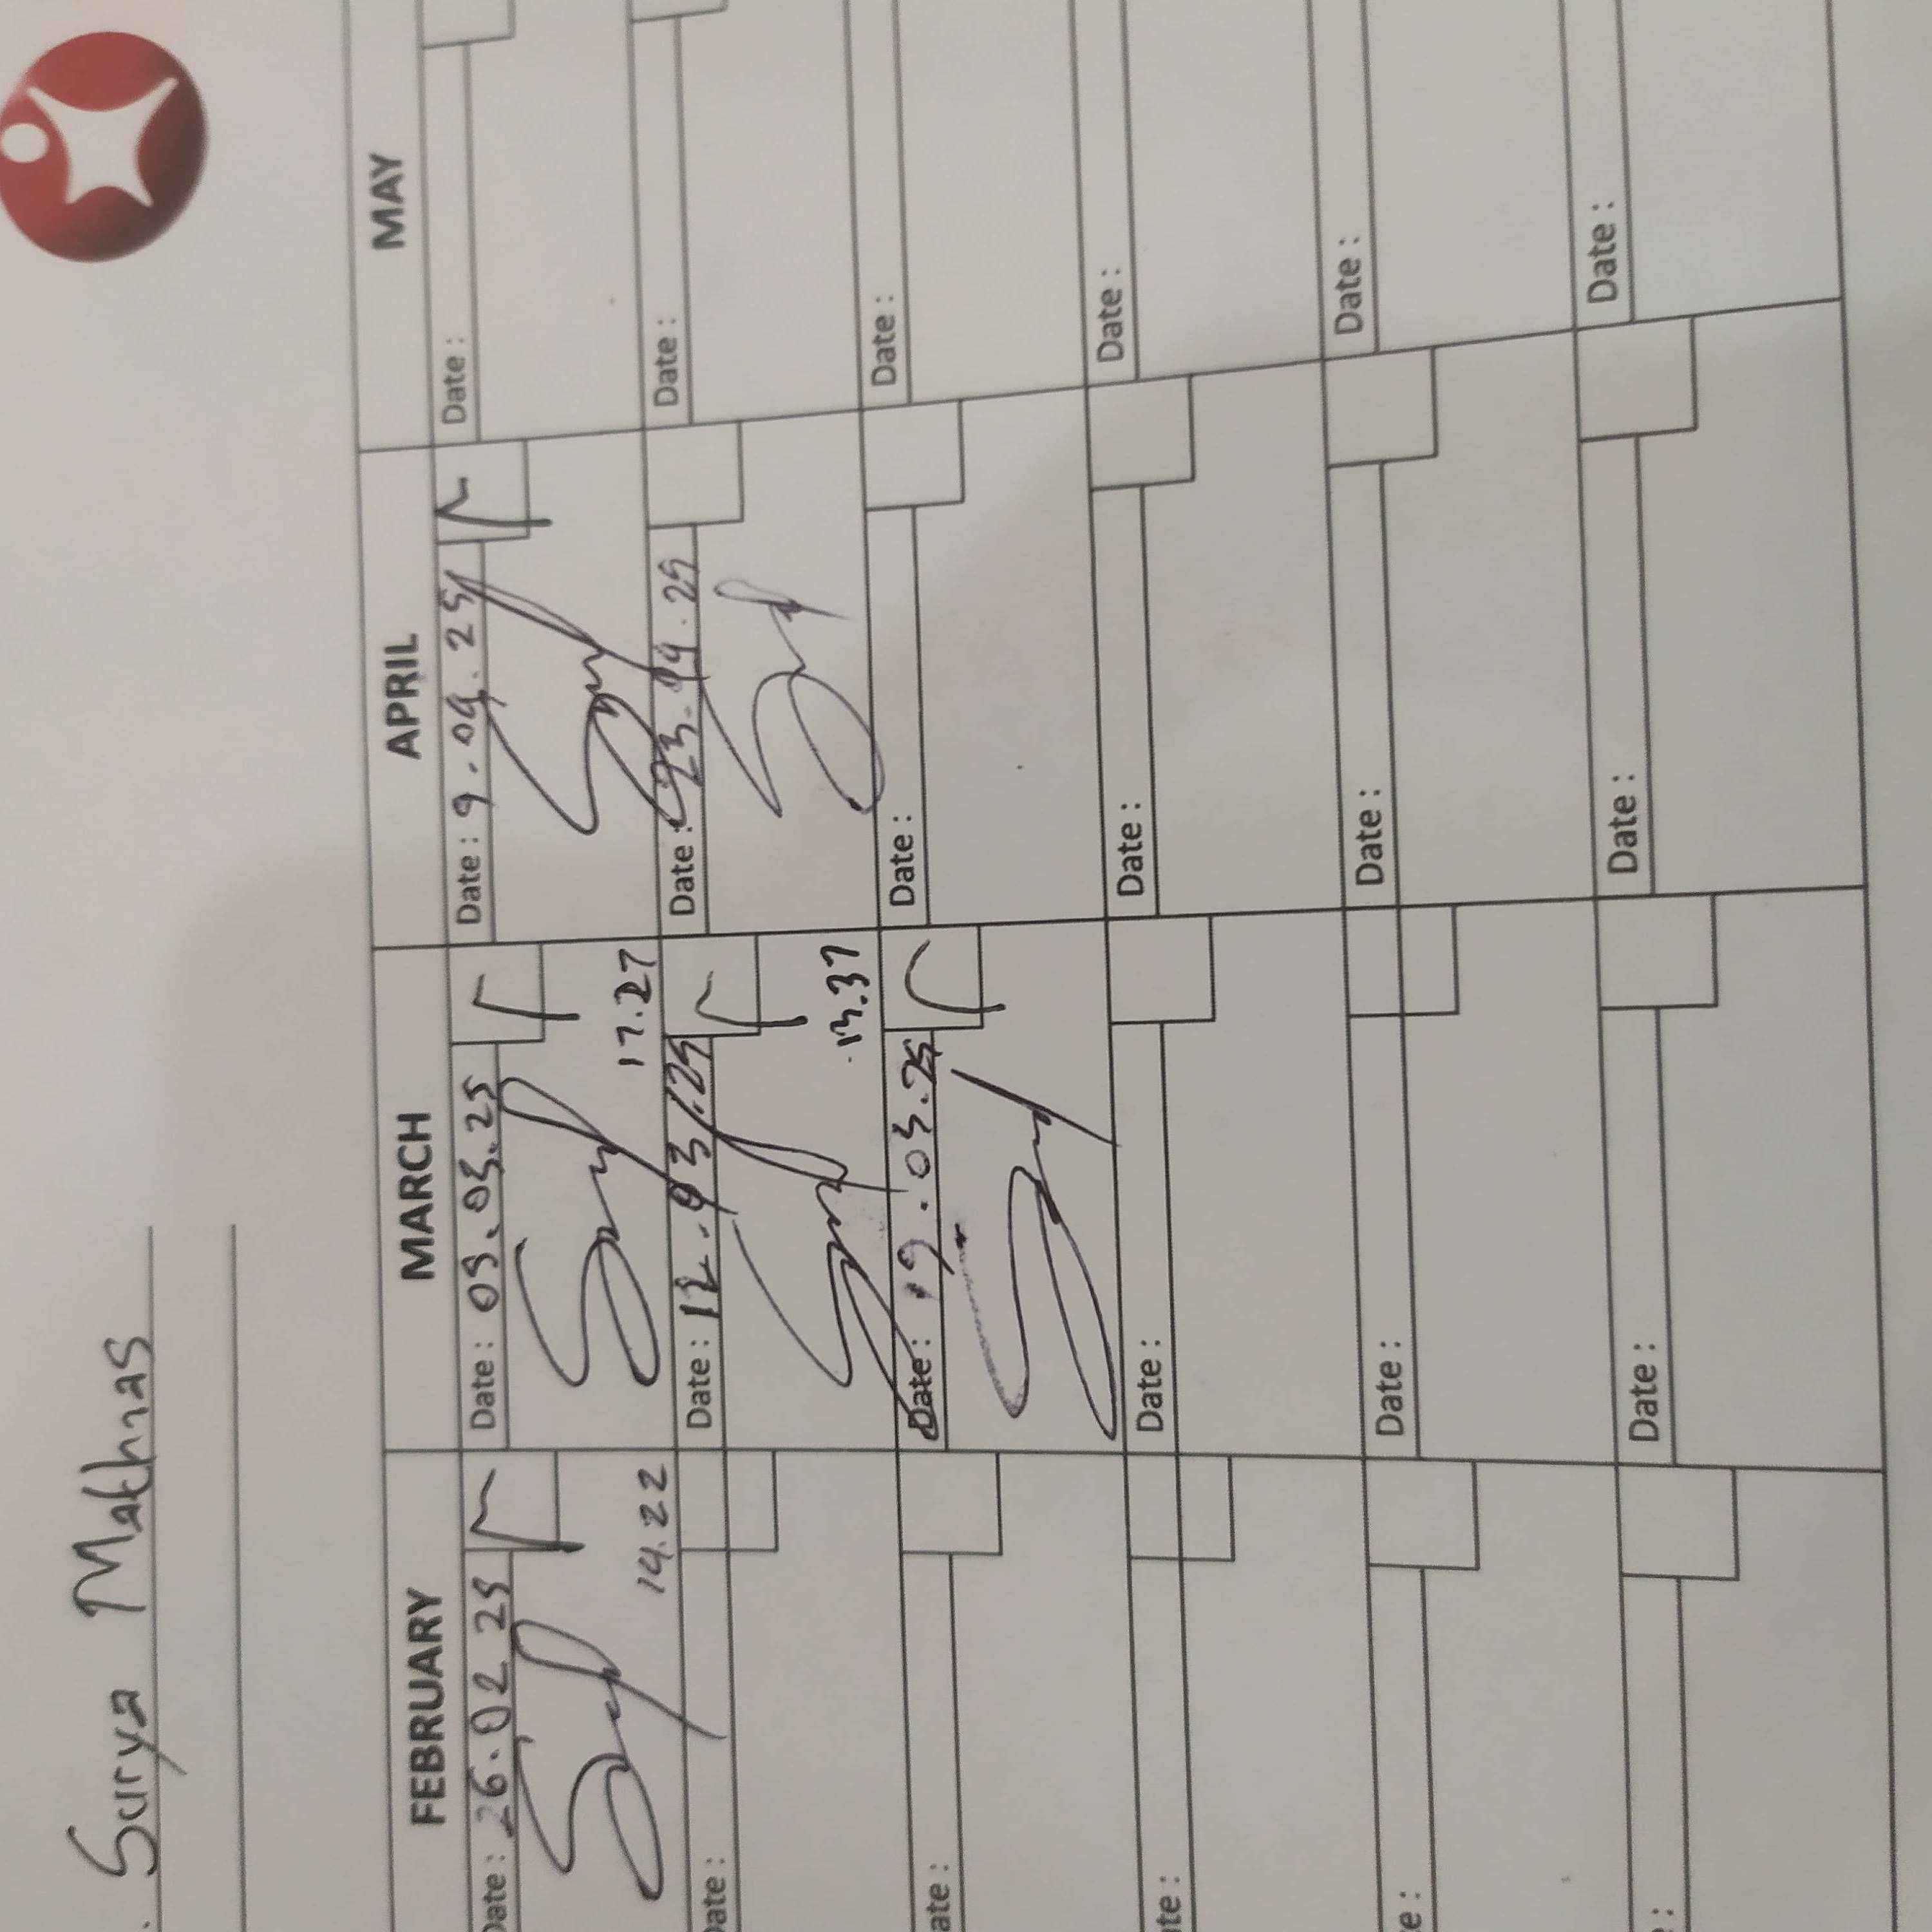 Surya Makhnas
FEBRUARY MARCH APRIL MAY
Date : 26.02.25 Date : 05.03.25 Date : 9.04.25 Date :
14.22 17.27
Date : Date : 12.03/25 Date : 23.04.25 Date :
13.37
Date : Date : 19.03.25 Date : Date :
Date : Date : Date : Date :
Date : Date : Date : Date :
: Date : Date : Date :